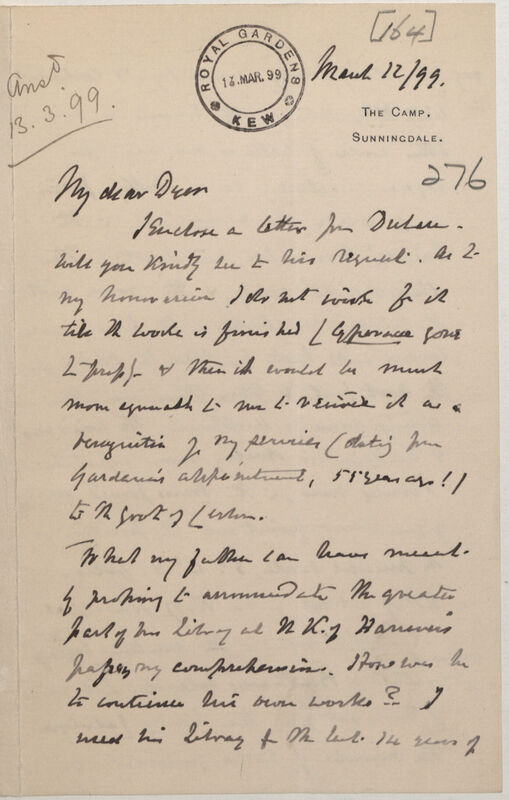 [164]
ROYAL GARDENS
13. MAR. 99
KEW
Ansd.
13.3.99.
March 12/99.
THE CAMP.
SUNNINGDALE.
276
My dear Dyer
I enclose a letter from
will you kindly see to his request. As to
my honorarium I do not wish for it
till the work is finished ( gone
to press) & then it would be much
more agreeable to me to receive it as a
recognition of my services (dating from
Gardner's appointment, 55 years ago!)
to the Govt of Ceylon.
What my father can have meant
by proposing to accommodate the greater
part of his Library at the K. of Hanover's
passes my comprehension. How was he
to continue his own works? I
used his Library for the last 14 years of